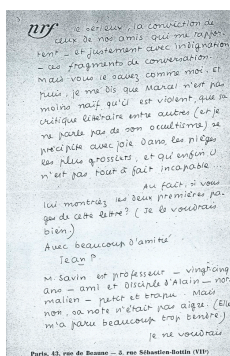 nrf
le sérieux, la conviction de
ceux de nos amis qui me rappor-
tent - et justement avec indignation
- ces fragments de conversation.
Mais vous le savez comme moi. Et
puis, je me dis que Marcel n'est pas
moins naïf qu'il est violent, que sa
critique littéraire entre autres (et je
ne parle pas de son occultisme) se
précipite avec joie dans les pièges
les plus grossiers, et qu'enfin il
n'est pas tout à fait incapable...
Au fait, si vous
lui montriez les deux premières pa-
ges de cette lettre? (Je le voudrais
bien.)
Avec beaucoup d'amitié
Jean P
M. Savin est professeur - vingt-cinq
ans - ami et disciple d'Alain - nor-
malien - petit et trapu. Mais
non, sa note n'était pas aigre. (Elle
m'a paru beaucoup trop tendre.)
Je ne voudrais
Paris, 43, rue de Beaune — 5, rue Sébastien-Bottin (VIIe)